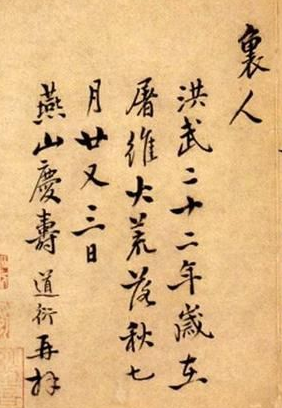 裏人
洪武二十二年歲在
屠維大荒落秋七
月廿又三日
燕山慶壽道衍再拜